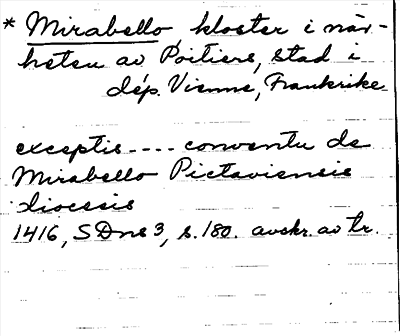 * Mirabello, kloster i när-
heten av Poitiers, stad i
dép. Vienne, Frankrike.
exceptis ---- conventu de
Mirabello Pictaviensis
diocesis
1416, SDns 3, s. 180. avskr. av tr.